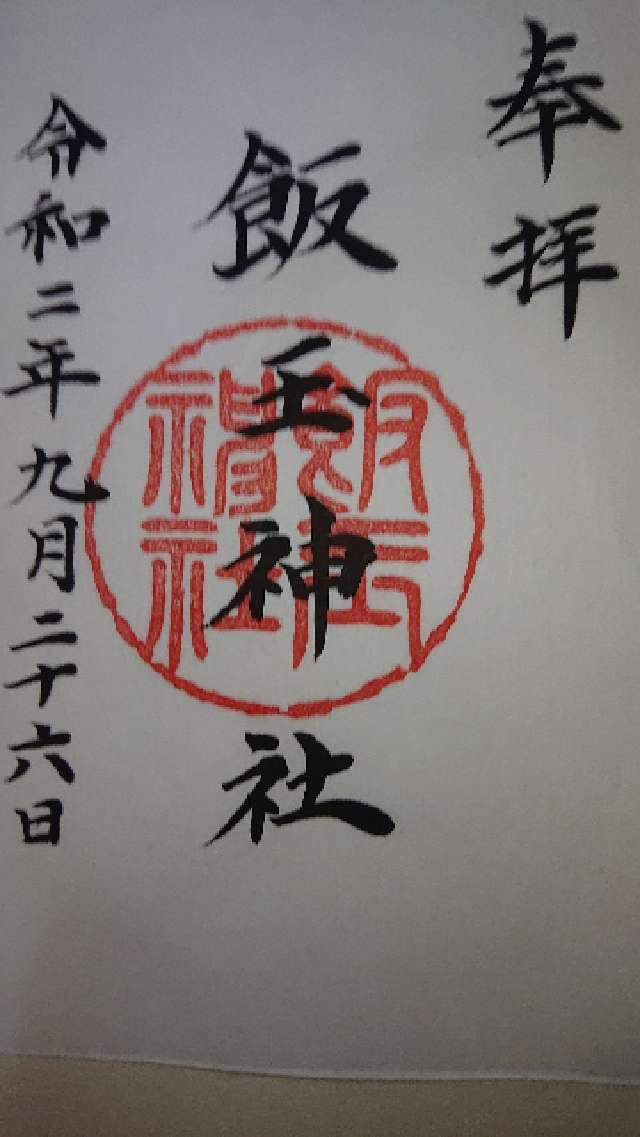 奉拝
飯玉神社
飯玉神社
令和二年九月二十六日